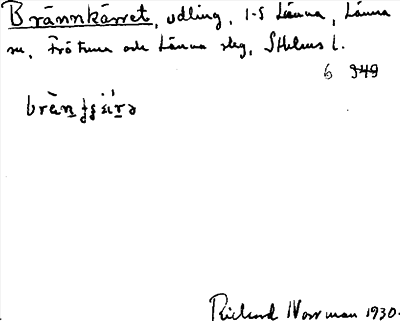 Brännkärret, odling, 1-5 Länna, Länna
sn, Frötuna och Länna slg, Sthlms l.
6 949
Richard Norrman 1930.